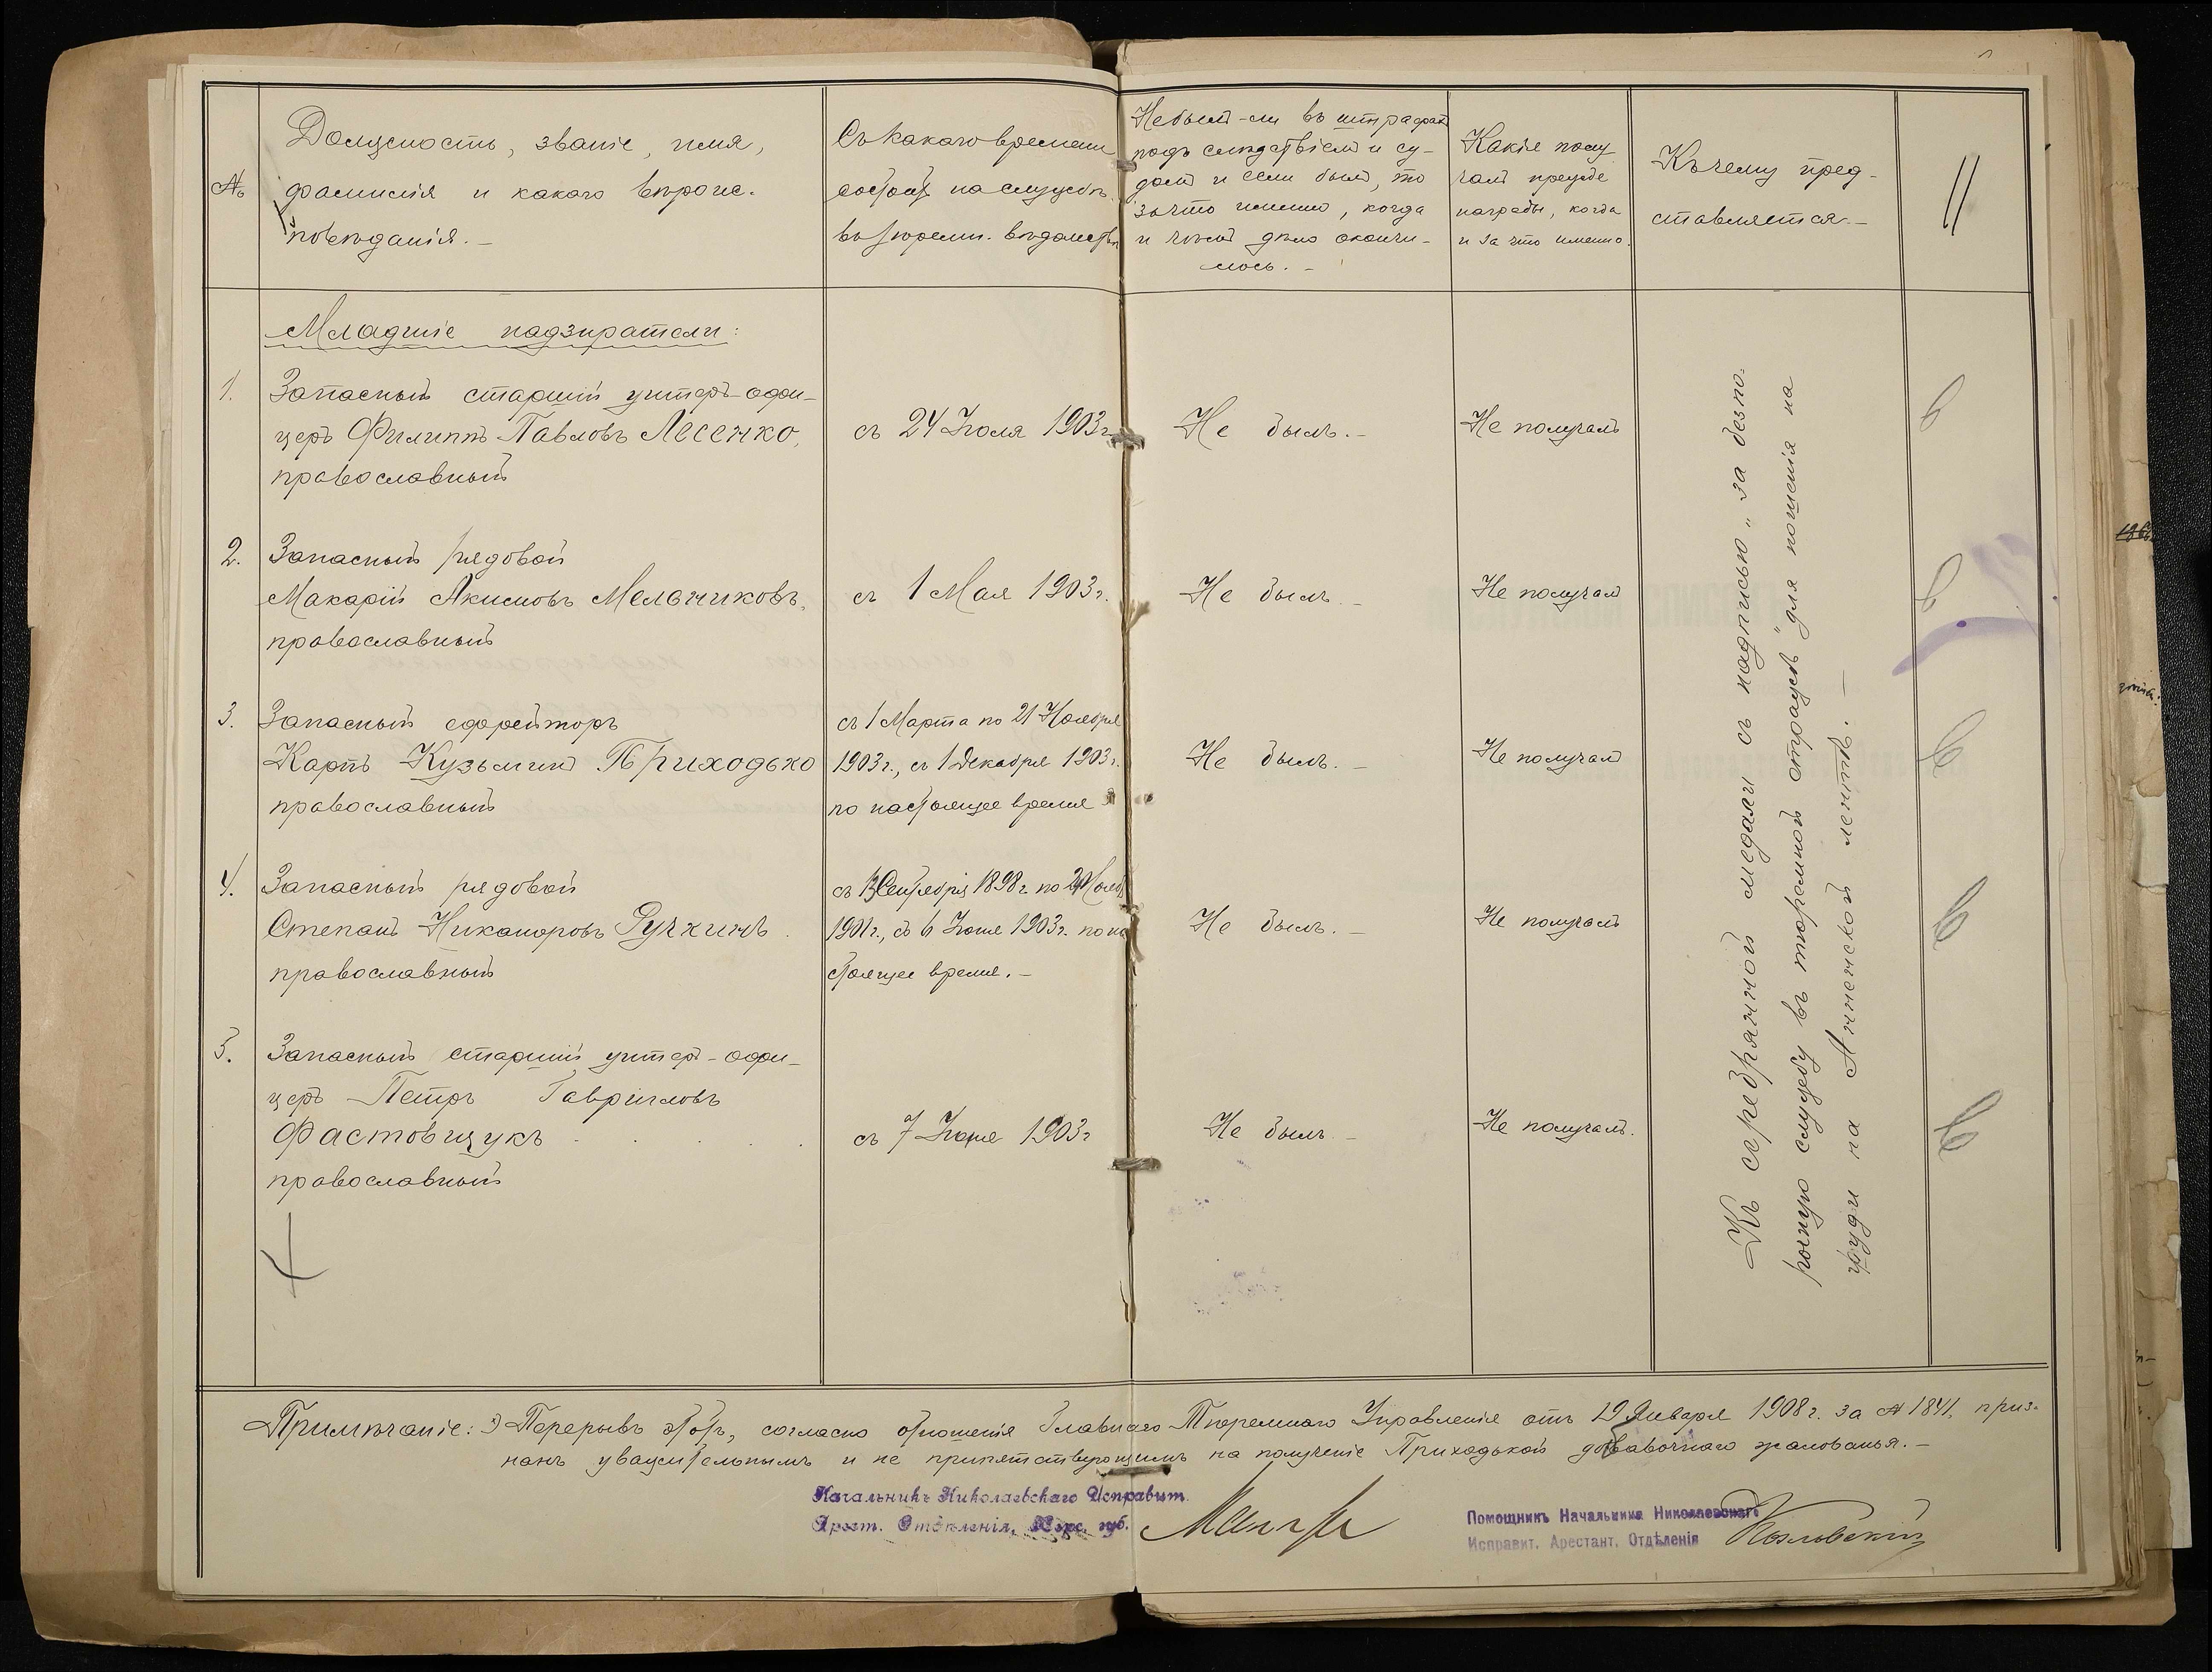 №
Должность, званіе, имя,
фамилія и какого вѣроис-
повѣданія. –
Съ какого времени
состоитъ на службѣ
въ тюремн. вѣдомствѣ
Не былъ-ли въ штрафахъ
подъ слѣдствіемъ и су-
домъ и если былъ, то
за что именно, когда
и чѣмъ дѣло окончи-
лось. –
Какія полу
чалъ прежде
награды, когда
и за что именно.
Къ чему пред-
ставляется. –
Младшіе надзиратели:
1.
Запасный старшій унтеръ-офи-
церъ Филиппъ Павловъ Лесенко,
православный
съ 24 Іюля 1903 г.
Не былъ. –
Не получалъ
2.
Запасный рядовой
Макарій Акимовъ Мельниковъ,
православный
съ 1 Мая 1903 г.
Не былъ. –
Не получалъ
3.
Запасный ефрейторъ
Карпъ Кузьминъ Приходько
православный
съ 1 Марта по 21 Ноября
1903 г., съ 1 Декабря 1903 г.
по настоящее время
Не былъ. –
Не получалъ
4.
Запасный рядовой
Степанъ Никаноровъ Ручкинъ.
православный
съ 13 Сентября 1898 г. по Нояб
1901 г., съ 6 Іюня 1903 г. по на
стоящее время. –
Не былъ. –
Не получалъ
5.
Запасный старшій унтеръ-офи-
церъ Петръ Гавриловъ
Фастовщукъ
православный
съ 7 Іюня 1903 г
Не былъ –
Не получалъ.
Къ серебрянной медали съ надписью „за безпо-
рочную службу въ тюремной стражѣ" для ношенія на
груди на Аннинской лентѣ. –
Примѣчаніе: Перерывъ этотъ, согласно отношенія Главнаго Тюремнаго Управленія отъ 19 Января 1908 г. за № 1841, приз-
нанъ уважительнымъ и не припятствующимъ на полученіе Приходькой добавочнаго жалованья. –
Начальникъ Николаевскаго Исправит.
Арест. Отдѣленія, Херс. губ.
Помощникъ Начальника Николаевскаго
Исправит. Арестант. Отдѣленія
Козловскій